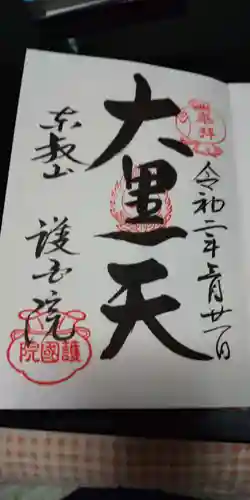 奉拝
令和二年月廿一日
大黒天
東叡山 護国院
護國院